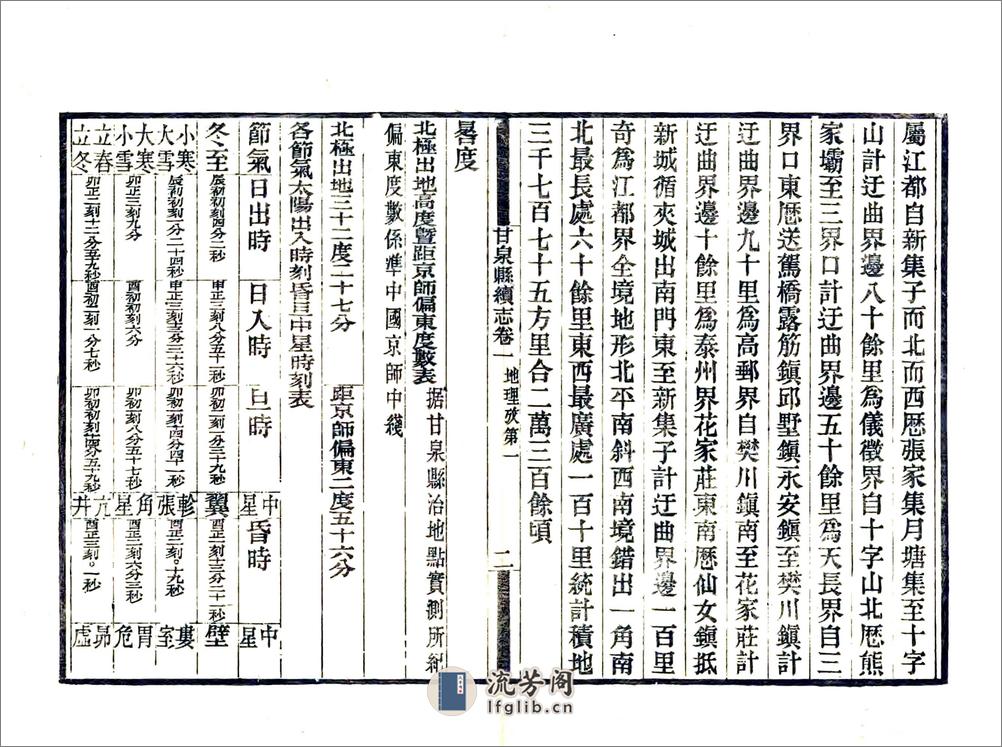 屬江都自新集子而北而西歷張家集月塘集至十字
山計迂曲界邊八十餘里爲儀徵界自十字山北歷熊
家壩至三界口計迂曲界邊五十餘里爲天長界自三
界口東歷送駕橋露筋鎭邱墅鎭永安鎭至樊川鎭計
迂曲界邊九十里爲高郵界自樊川鎭南至花家莊計
迂曲界邊十餘里爲泰州界花家莊東南歷仙女鎭抵
新城循夾城出南門東至新集子計迂曲界邊一百里
奇爲江都界全境地形北平南斜西南境錯出一角南
北最長處六十餘里東西最廣處一百十里統計積地
三千七百七十五方里合二萬三百餘頃
甘泉縣續志卷一 地理攷第一 二
晷度
北極出地高度曁距京師偏東度數表 據甘泉縣治地點實測所紀
偏東度數係準中國京師中綫
北極出地三十二度二十七分 距京師偏東二度五十六分
各節氣太陽出入時刻昏旦中星時刻表
節氣 日出時 日入時 旦時 中星 昏時 中星
冬至 辰初初刻四分二秒 申正三刻八分五十二秒 卯初初刻一分三十九秒 翼 酉正一刻十三分二十一秒 壁
小寒 大雪 辰初初刻一分二十四秒 申正三刻十三分三十六秒 卯初初刻四分四十一秒 軫 張 酉正二刻。十九秒 婁 室
大寒 小雪 卯正三刻九分 酉初初刻六分 卯初初刻八分五十七秒 角 星 酉正二刻六分三秒 胃 危
立春 立冬 卯正二刻十三分五十九秒 酉初一刻一分七秒 卯初初刻 酉正三刻。一秒 亢 井 昴 虛
流芳阁
lfglib.cn